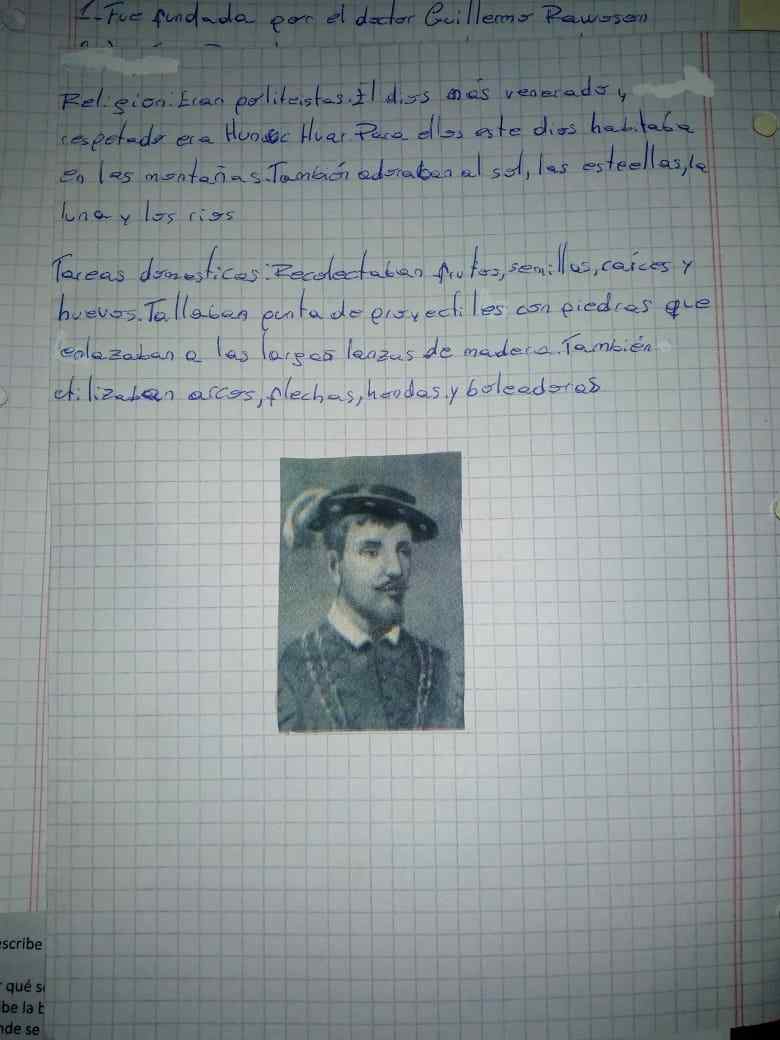 1-Fue fundada por el doctor Guillermo Rawoson
Religion: Eran politeistas. El dios más venerado y
respetado era Hunuc Huar. Para ellos este dios habitaba
en las montañas. También adoraban al sol, las estrellas, la
luna y los rios
Tareas domesticas: Recolectaban frutos, semillas, raíces y
huevos. Tallaban punta de proyectiles con piedras que
enlazaban a las largas lanzas de madera. También
utilizaban arcos, flechas, hondas y boleadoras
escribe
qué
be la b
nde se